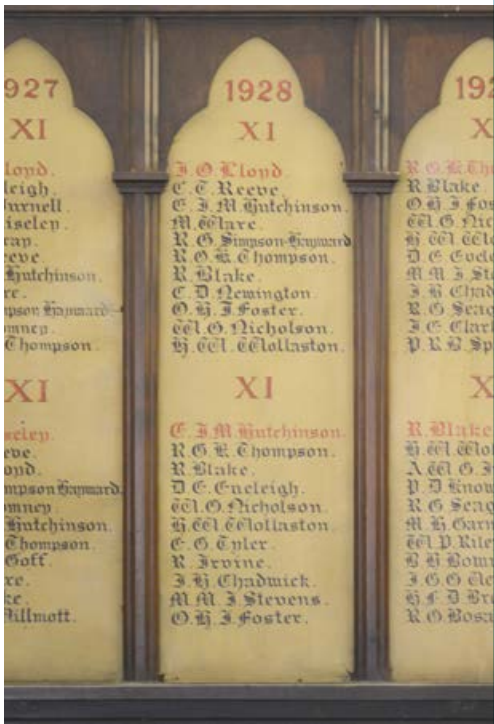 1927
XI
loyd.
leigh.
urnell.
iseley.
ray.
eeve.
Hutchinson.
re.
pson Hayward.
omney.
Thompson.
XI
seley.
eve.
oyd.
mpson Hayward.
omney.
Hutchinson.
Thompson.
Goff.
re.
ke.
Willmott.
1928
XI
J. O. Lloyd.
C. T. Reeve.
E. J. M. Hutchinson.
M. Ware.
R. G. Simpson-Hayward
R. G. K. Thompson.
R. Blake.
C. D. Newington.
O. H. J. Foster.
W. G. Nicholson.
H. W. Wollaston.
XI
E. J. M. Hutchinson.
R. G. K. Thompson.
R. Blake.
D. E. Eveleigh.
W. G. Nicholson.
H. W. Wollaston.
E. G. Tyler.
R. Irvine.
J. H. Chadwick.
M. M. J. Stevens.
O. H. J. Foster.
192
X
R. G. K. Tho
R. Blake.
O H J Fos
W. G. Nic
H W Wol
D. E. Evel
M M J. Ste
J. H Chad
R. G. Seag
J. E. Clark
P. R. B. Sp
X
R. Blake
H. W. Wol
A W G. J
P. D. Know
R G Seag
M. H. Garn
W P. Rile
B H Bowr
J G G Ve
H F D Br
R G Bosa